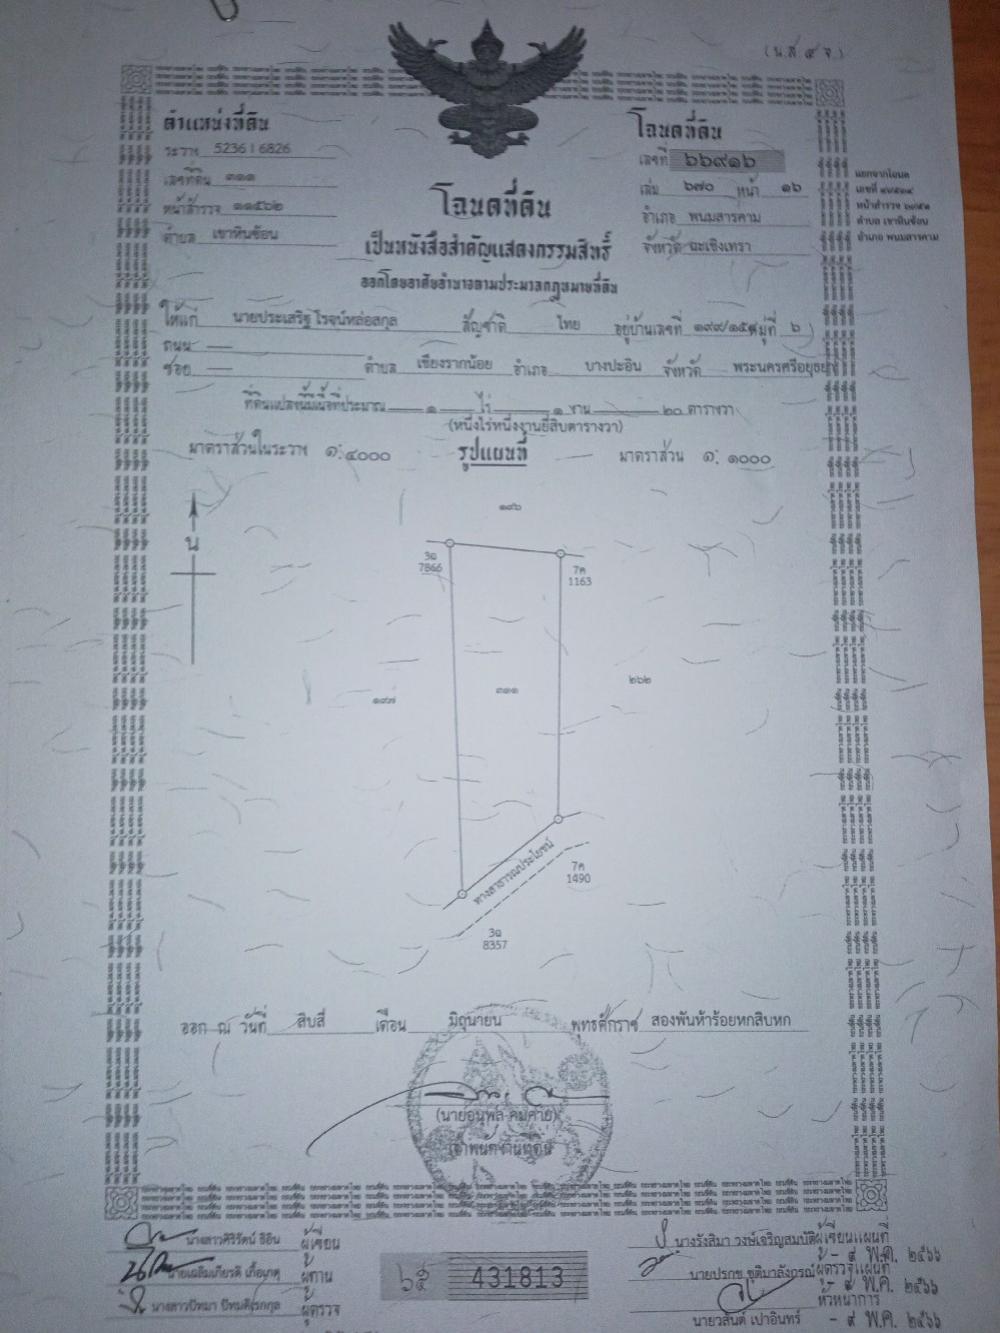 (น.ส.๔ จ.)
ตำแหน่งที่ดิน
ระวาง 5236 I 6826
เลขที่ดิน ๓๑๑
หน้าสำรวจ ๑๑๕๖๒
ตำบล เขาหินซ้อน
โฉนดที่ดิน
เลขที่ ๖๖๙๑๖
เล่ม ๖๗๐ หน้า ๑๖
อำเภอ พนมสารคาม
จังหวัด ฉะเชิงเทรา
แยกจากโฉนด
เลขที่
หน้าสำรวจ
ตำบล เขาหินซ้อน
อำเภอ พนมสารคาม
โฉนดที่ดิน
เป็นหนังสือสำคัญแสดงกรรมสิทธิ์
ออกโดยอาศัยอำนาจตามประมวลกฎหมายที่ดิน
ให้แก่ นายประเสริฐ โรจน์หล่อสกุล สัญชาติ ไทย อยู่บ้านเลขที่ ๑๙๙/๑๕๙ หมู่ที่ ๖
ถนน —
ซอย — ตำบล เชียงรากน้อย อำเภอ บางปะอิน จังหวัด พระนครศรีอยุธยา
ที่ดินแปลงนี้มีเนื้อที่ประมาณ ๑ ไร่ ๑ งาน ๒๐ ตารางวา
(หนึ่งไร่หนึ่งงานยี่สิบตารางวา)
มาตราส่วนในระวาง ๑:๔๐๐๐ รูปแผนที่ มาตราส่วน ๑:๑๐๐๐
น
๑๙๖
3ฉ
7866
7ค
1163
๑๙๗
๓๑๑
๒๖๒
ทางสาธารณประโยชน์
7ค
1490
3ฉ
8357
ออก ณ วันที่ สิบสี่ เดือน มิถุนายน พุทธศักราช สองพันห้าร้อยหกสิบหก
(นายอนุพล คุมค่าย)
เจ้าพนักงานที่ดิน
นางสาวศิริรัตน์ ผู้เขียน
นายเฉลิมเกียรติ ผู้ทาน
นางสาวปัทมา ผู้ตรวจ
๖๕ 431813
นางรังสิมา วงษ์เจริญสมบัติ ผู้เขียนแผนที่
- ๙ พ.ค. ๒๕๖๖
นายปรกช ชุติมาลังกรณ์ ผู้ตรวจแผนที่
- ๙ พ.ค. ๒๕๖๖
หัวหน้าการ
นายวสันต์ เปาอินทร์ - ๙ พ.ค. ๒๕๖๖